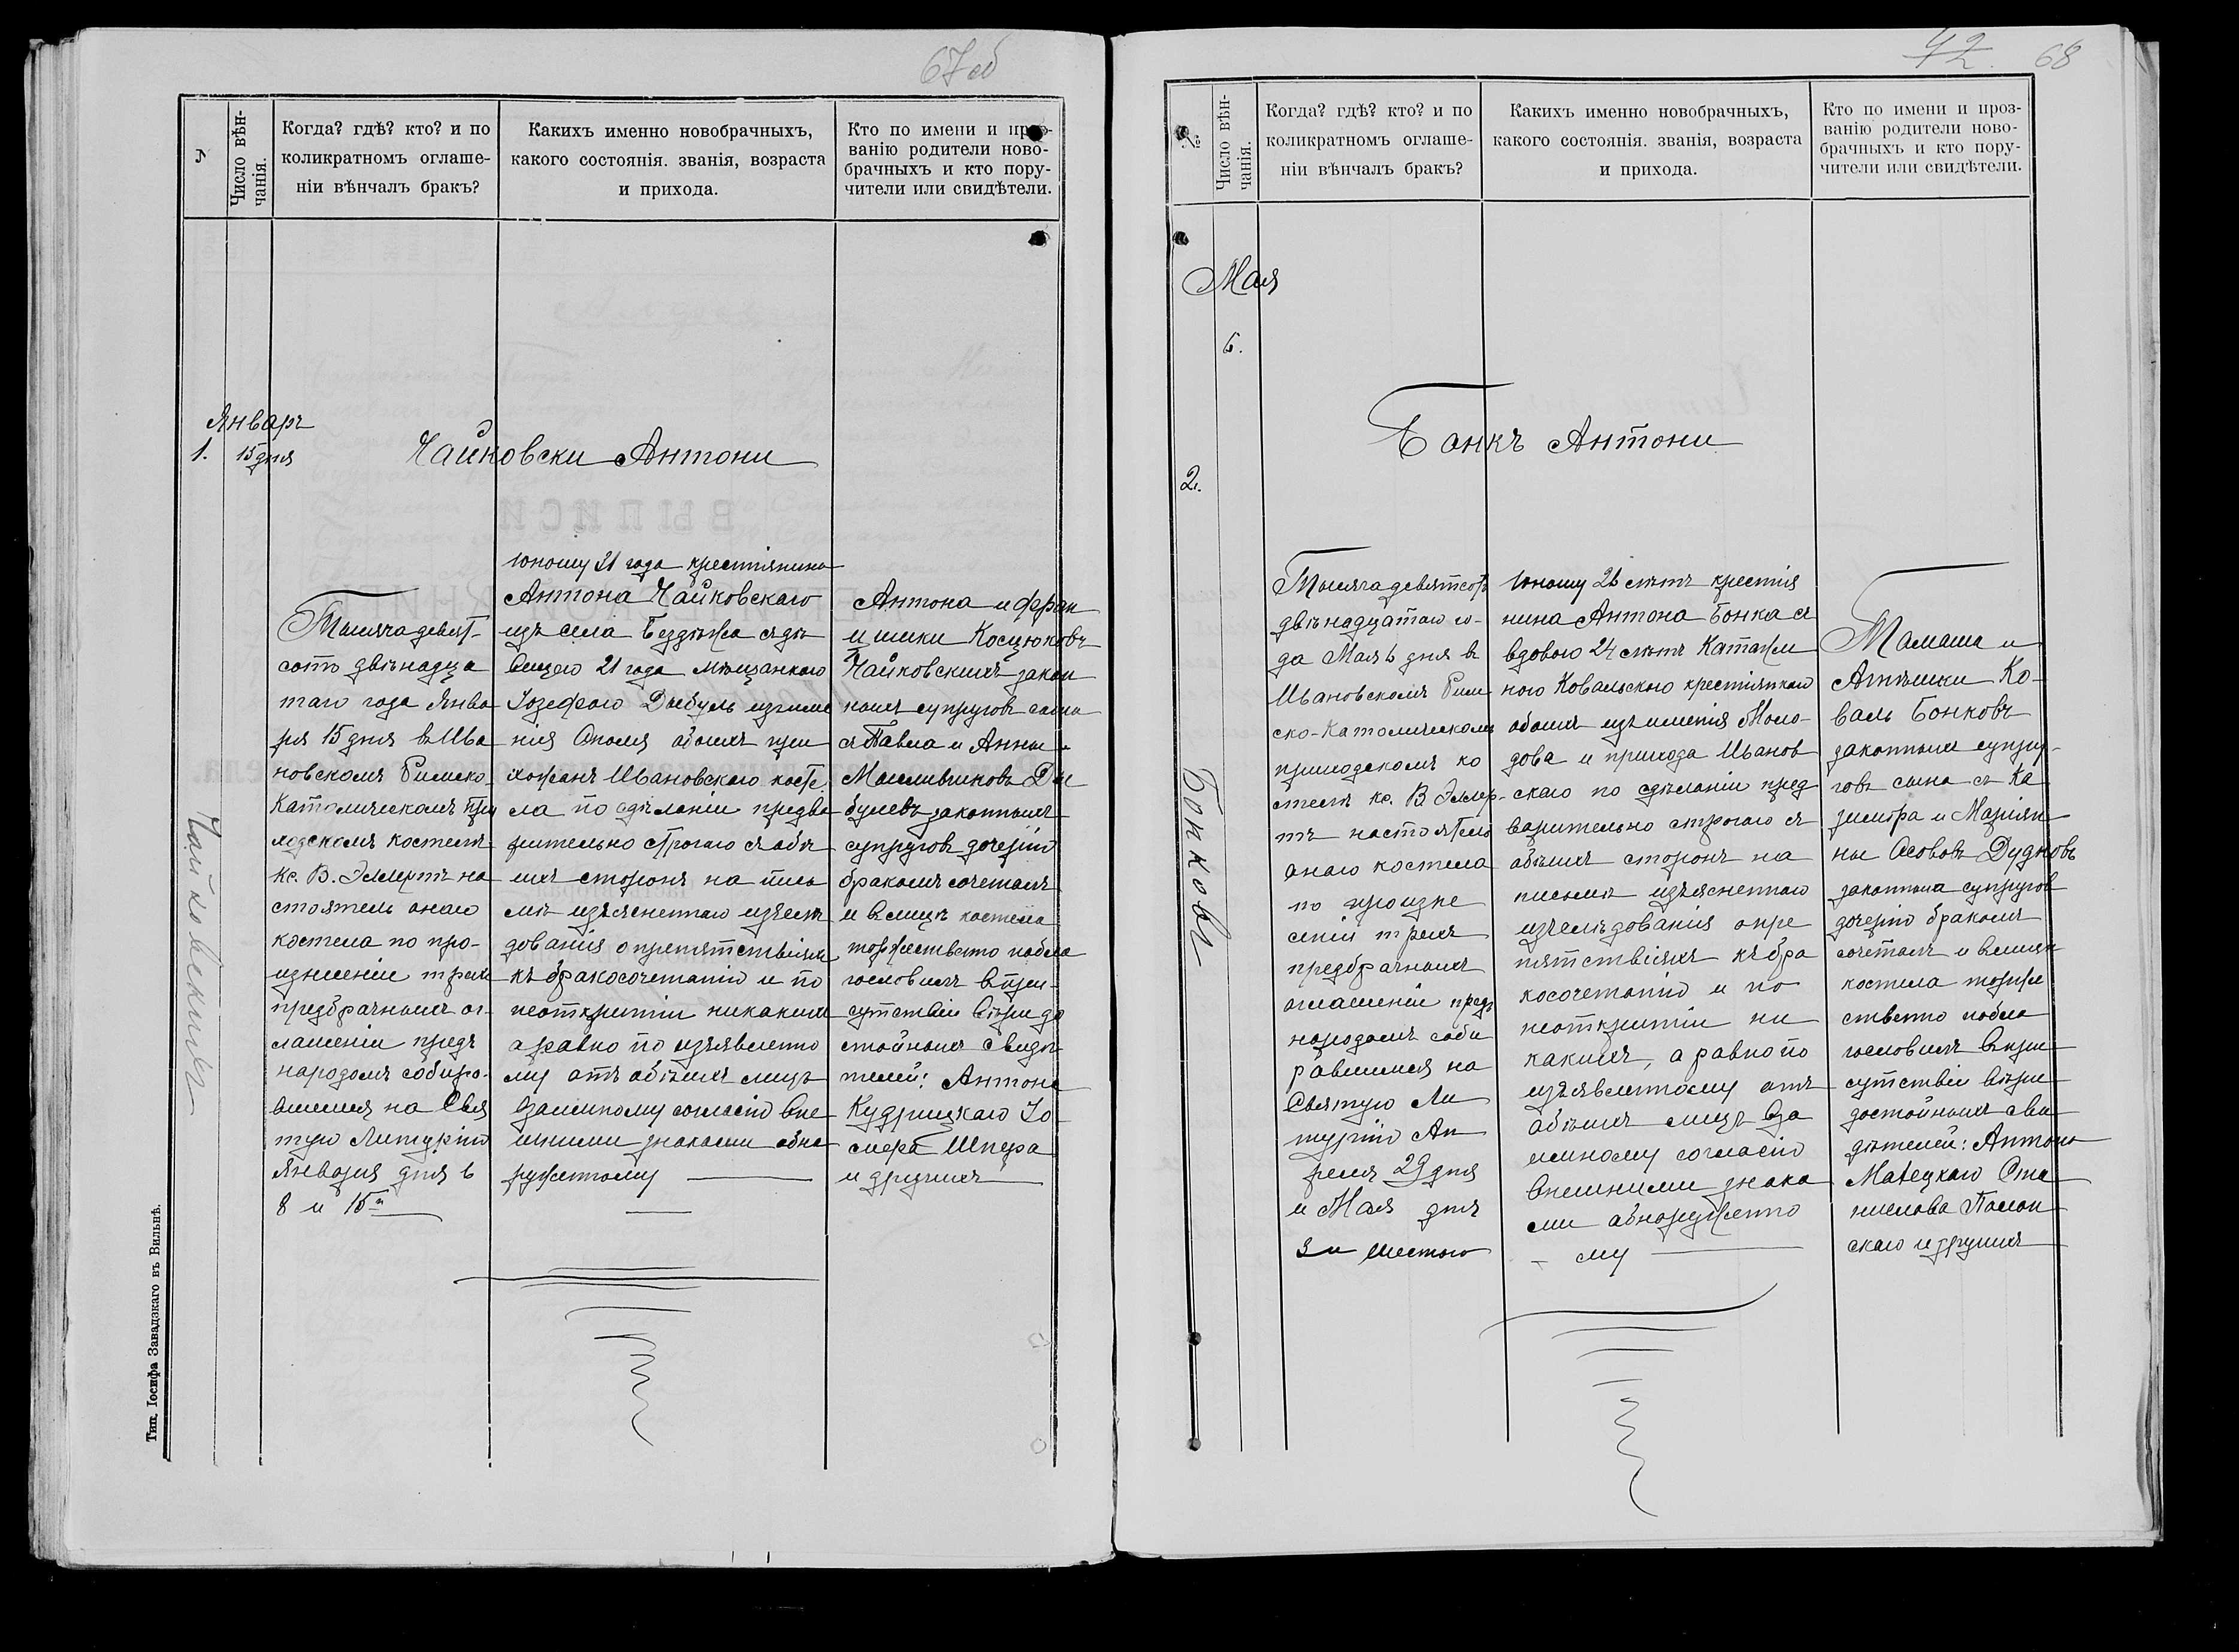 67 об
Число вѣн-
чанія.
Когда? гдѣ? кто? и по
коликратномъ оглаше-
ніи вѣнчалъ бракъ?
Какихъ именно новобрачныхъ,
какого состоянія. званія, возраста
и прихода.
Кто по имени и
ванію родители ново-
брачныхъ и кто пору-
чители или свидѣтели.
Январь
1. 15 дня
Чайковски Антони
Чайковскихъ
Тысяча девят-
сотъ двѣнадца
таго года Янва
ря 15 дня в Ива
новскомъ Римско
Католическомъ при
ходскомъ костелѣ
Кс. В. Эллертъ на
стоятель онаго
костела по про-
изнесеніи трехъ
предбрачныхъ ог-
лашеній предъ
народомъ собира-
вшимся на Свя
тую Литургію
Января дня 6
8 и 15го
юношу 21 года крестіянина
Антона Чайковскаго
изъ села Бездѣжа съ дѣ
вицею 21 года мѣщанкаю
Іозефою Дыбуль изъ име
нія Ополя обоихъ при
хожанъ Ивановскаго косте
ла по сдѣланіи предва
рительно строгаго съ обѣ
ихъ сторонъ на пись
мѣ изъясненнаго изъслѣ
дованія о препятствіяхъ
къ бракосочетанію и по
неоткрытіи никакихъ
а равно по изъявленно
му отъ обѣихъ лицъ
взаимному согласію вне
шними знаками обна
руженному
Антона и Фран
цишки Косцюковъ
Чайковскихъ закон
ныхъ супруговъ сына
съ Павла и Анны
Дыбулевъ законныхъ
супруговъ дочерію
бракомъ сочеталъ
и въ лицѣ костела
торжественно побла
гословилъ в при-
сутствіи вѣри до
стойныхъ свидѣ-
телей: Антона
Кудрицкаго Іо
сифа Шпера
и другихъ
Тип. Іосифа Завадзкаго въ Вильнѣ.
42. 68
№
Число вѣн-
чанія.
Когда? гдѣ? кто? и по
коликратномъ оглаше-
ніи вѣнчалъ бракъ?
Какихъ именно новобрачныхъ,
какого состоянія. званія, возраста
и прихода.
Кто по имени и проз-
ванію родители ново-
брачныхъ и кто пору-
чители или свидѣтели.
Мая
6.
2.
Бонкъ Антони
Бонковъ
Тысяча девятсотъ
двѣнадцатаго го-
да Мая 6 дня в
Ивановскомъ Рим
ско-Католическомъ
приходскомъ ко
стелѣ кс. В. Эллер-
тъ настоятель
онаго костела
по произне
сеніи трехъ
предбрачныхъ
оглашеній предъ
народомъ соби
равшимся на
Святую Ли
тургію Ап
реля 29 дня
и Мая дня
3 и шестого
юношу 26 лѣтъ крестія
нина Антона Бонка съ
вдовою 24 лѣтъ Катажи
ною Ковальскою крестіянкою
обоихъ изъ именія Моло-
дова и прихода Иванов
скаго по сдѣланіи пред
варительно строгаго съ
обѣихъ сторонъ на
письмѣ изъясненнаго
изъслѣдованія о пре
пятствіяхъ къ бра
косочетанію и по
неоткрытіи ни
какихъ, а равно по
изъявленному отъ
обѣихъ лицъ вза
имному согласію
внешними знака
ми обнаруженно
- му
Тамаша и
Агнешки Ко-
валь Бонковъ
законныхъ супру-
говъ сына съ Ка
зимира и Маріян
ны Осововъ Дудковъ
законныхъ супруговъ
дочерію бракомъ
сочеталъ и в лицѣ
костела торже
ственно побла
гословилъ в при
сутствіи вѣри
достойныхъ сви
дѣтелей: Антона
Мацецкаго Ста
нислава Полон
скаго и другихъ